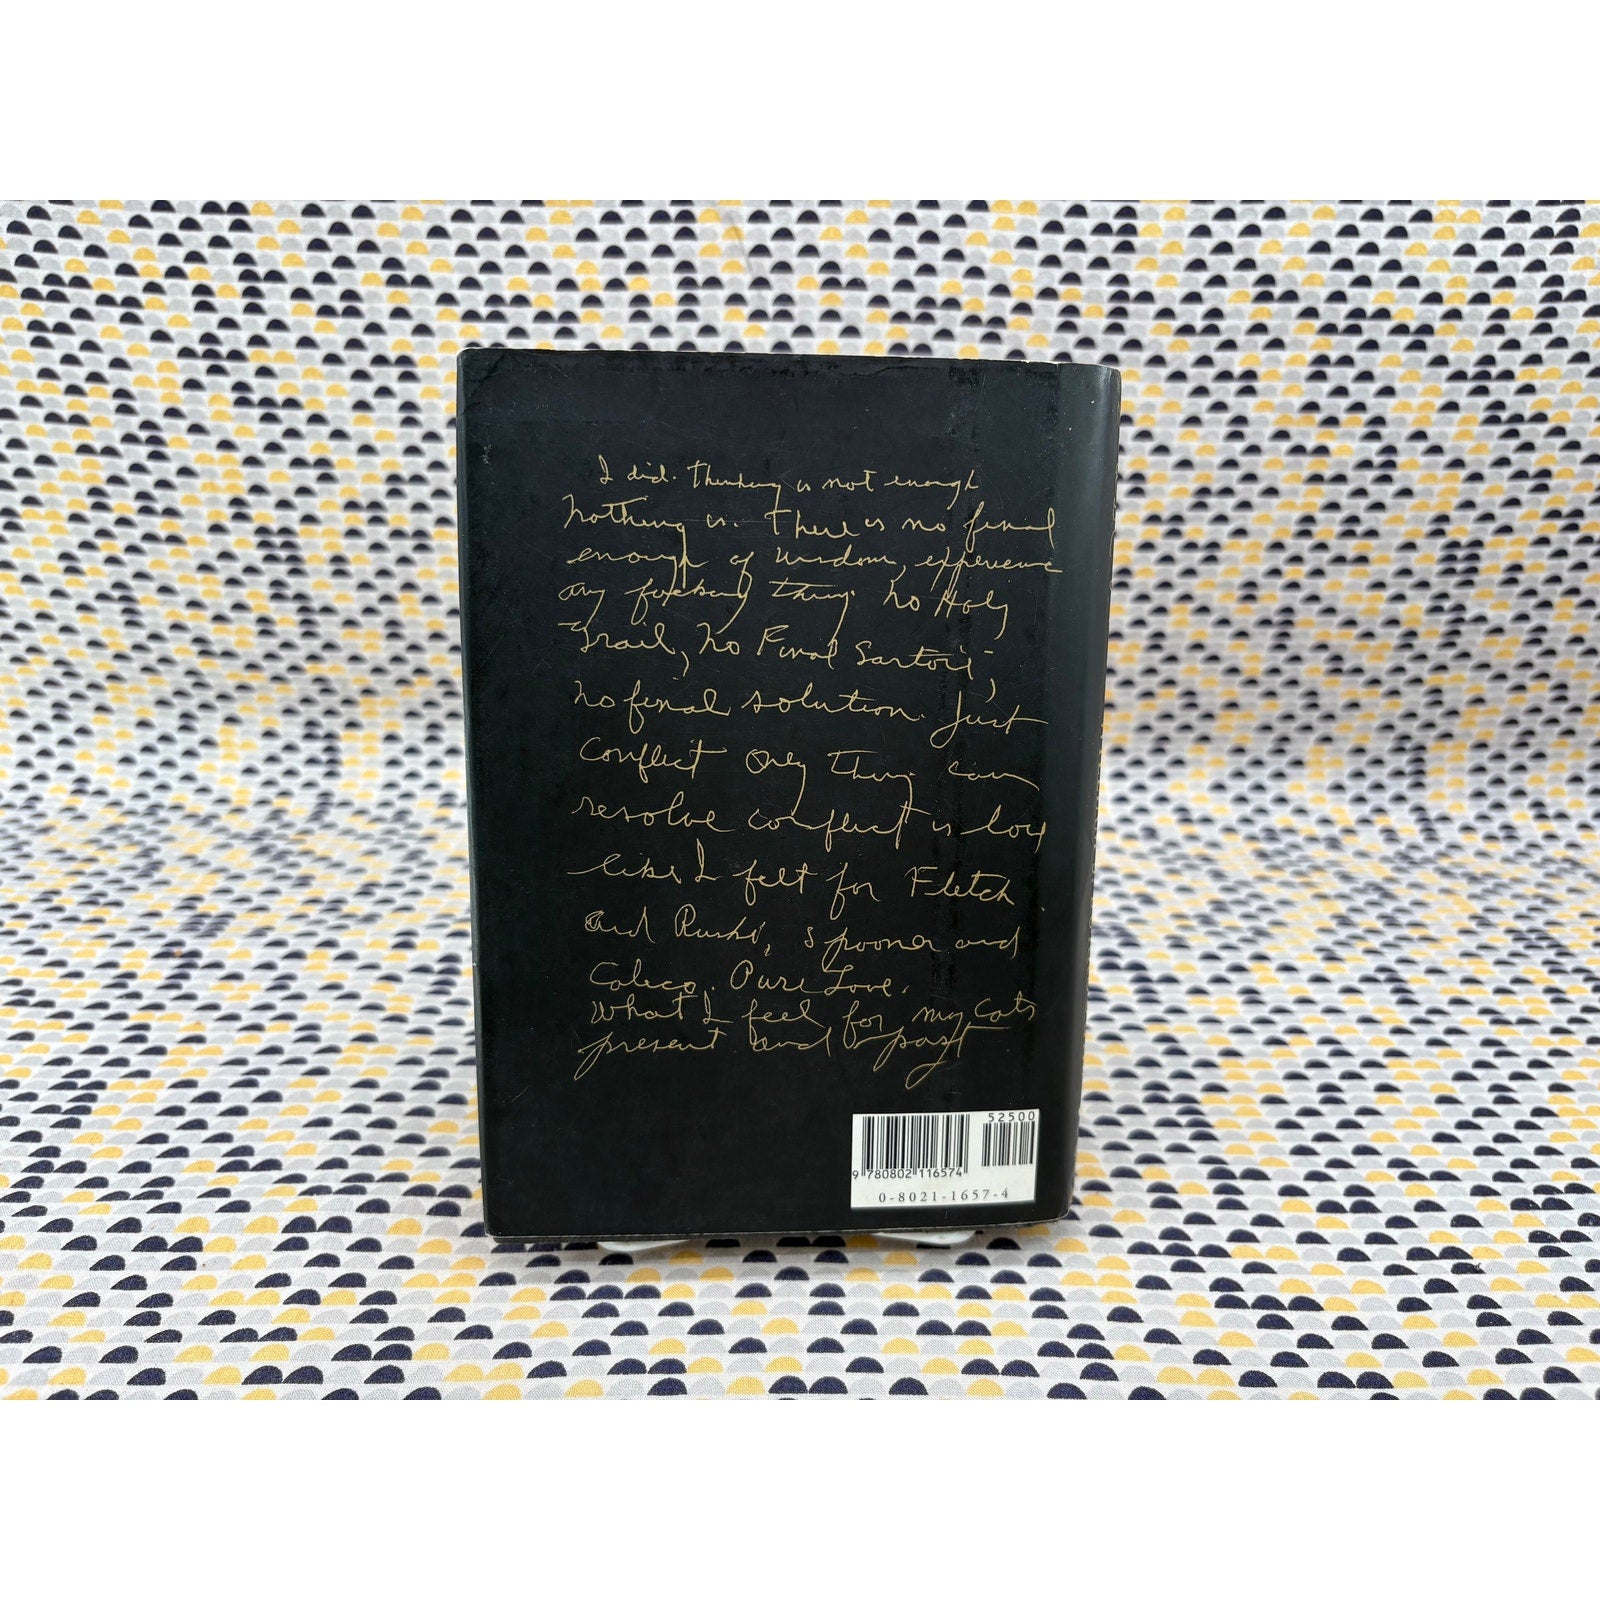 I did. Thinking is not enough
Nothing is. There is no final
enough of wisdom, experience
any fucking thing. No Holy
Grail, No Final Sartori,
no final solution. Just
conflict Only thing can
resolve conflict is love
like I felt for Fletch
and Ruski, Spooner and
Calico. Pure Love.
What I feel for my Cats
present and past
52500
9 780802 116574
0-8021-1657-4